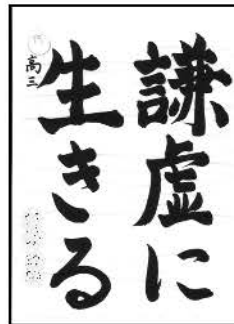 謙虚に
生きる
高三